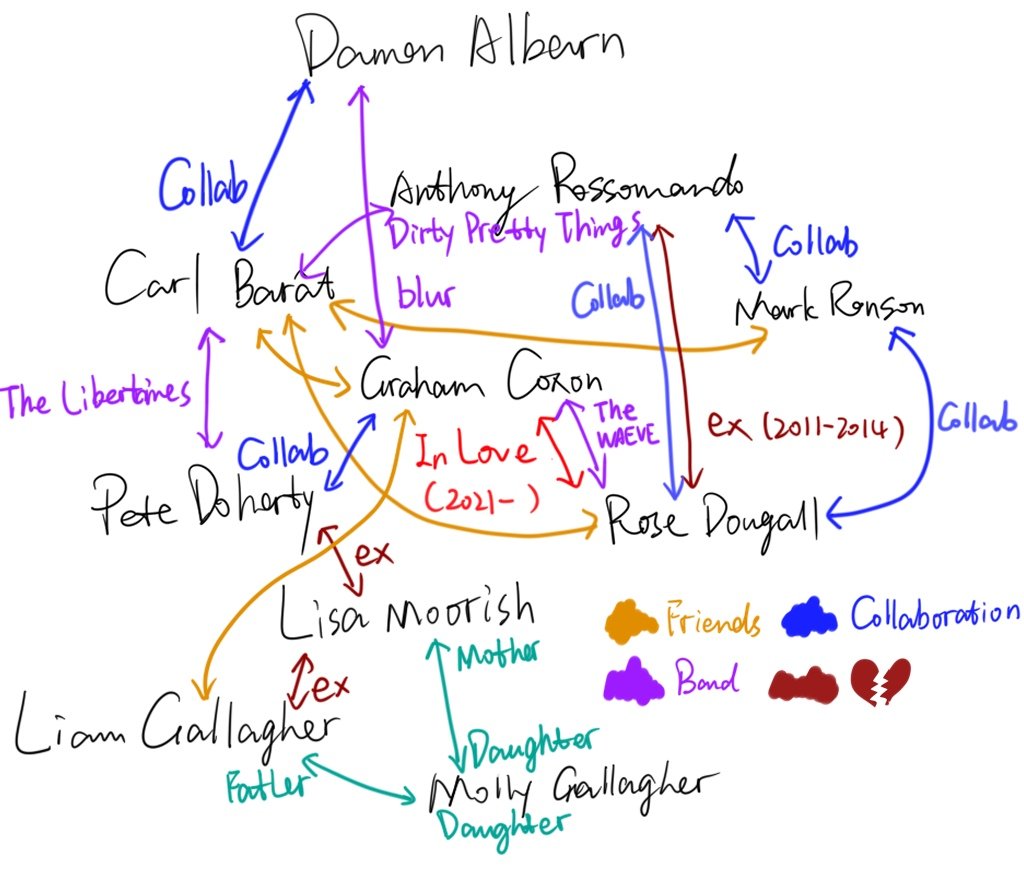 Damon Albarn
Collab
Anthony Rossomando
Dirty Pretty Things
Collab
Carl Barát
blur
Collab
Mark Ronson
The Libertines
Graham Coxon
The
WAEVE
ex (2011-2014)
Collab
Collab
In Love
(2021- )
Pete Doherty
Rose Dougall
ex
Lisa Moorish
Friends
Collaboration
Mother
ex
Band
Liam Gallagher
Father
Daughter
Molly Gallagher
Daughter